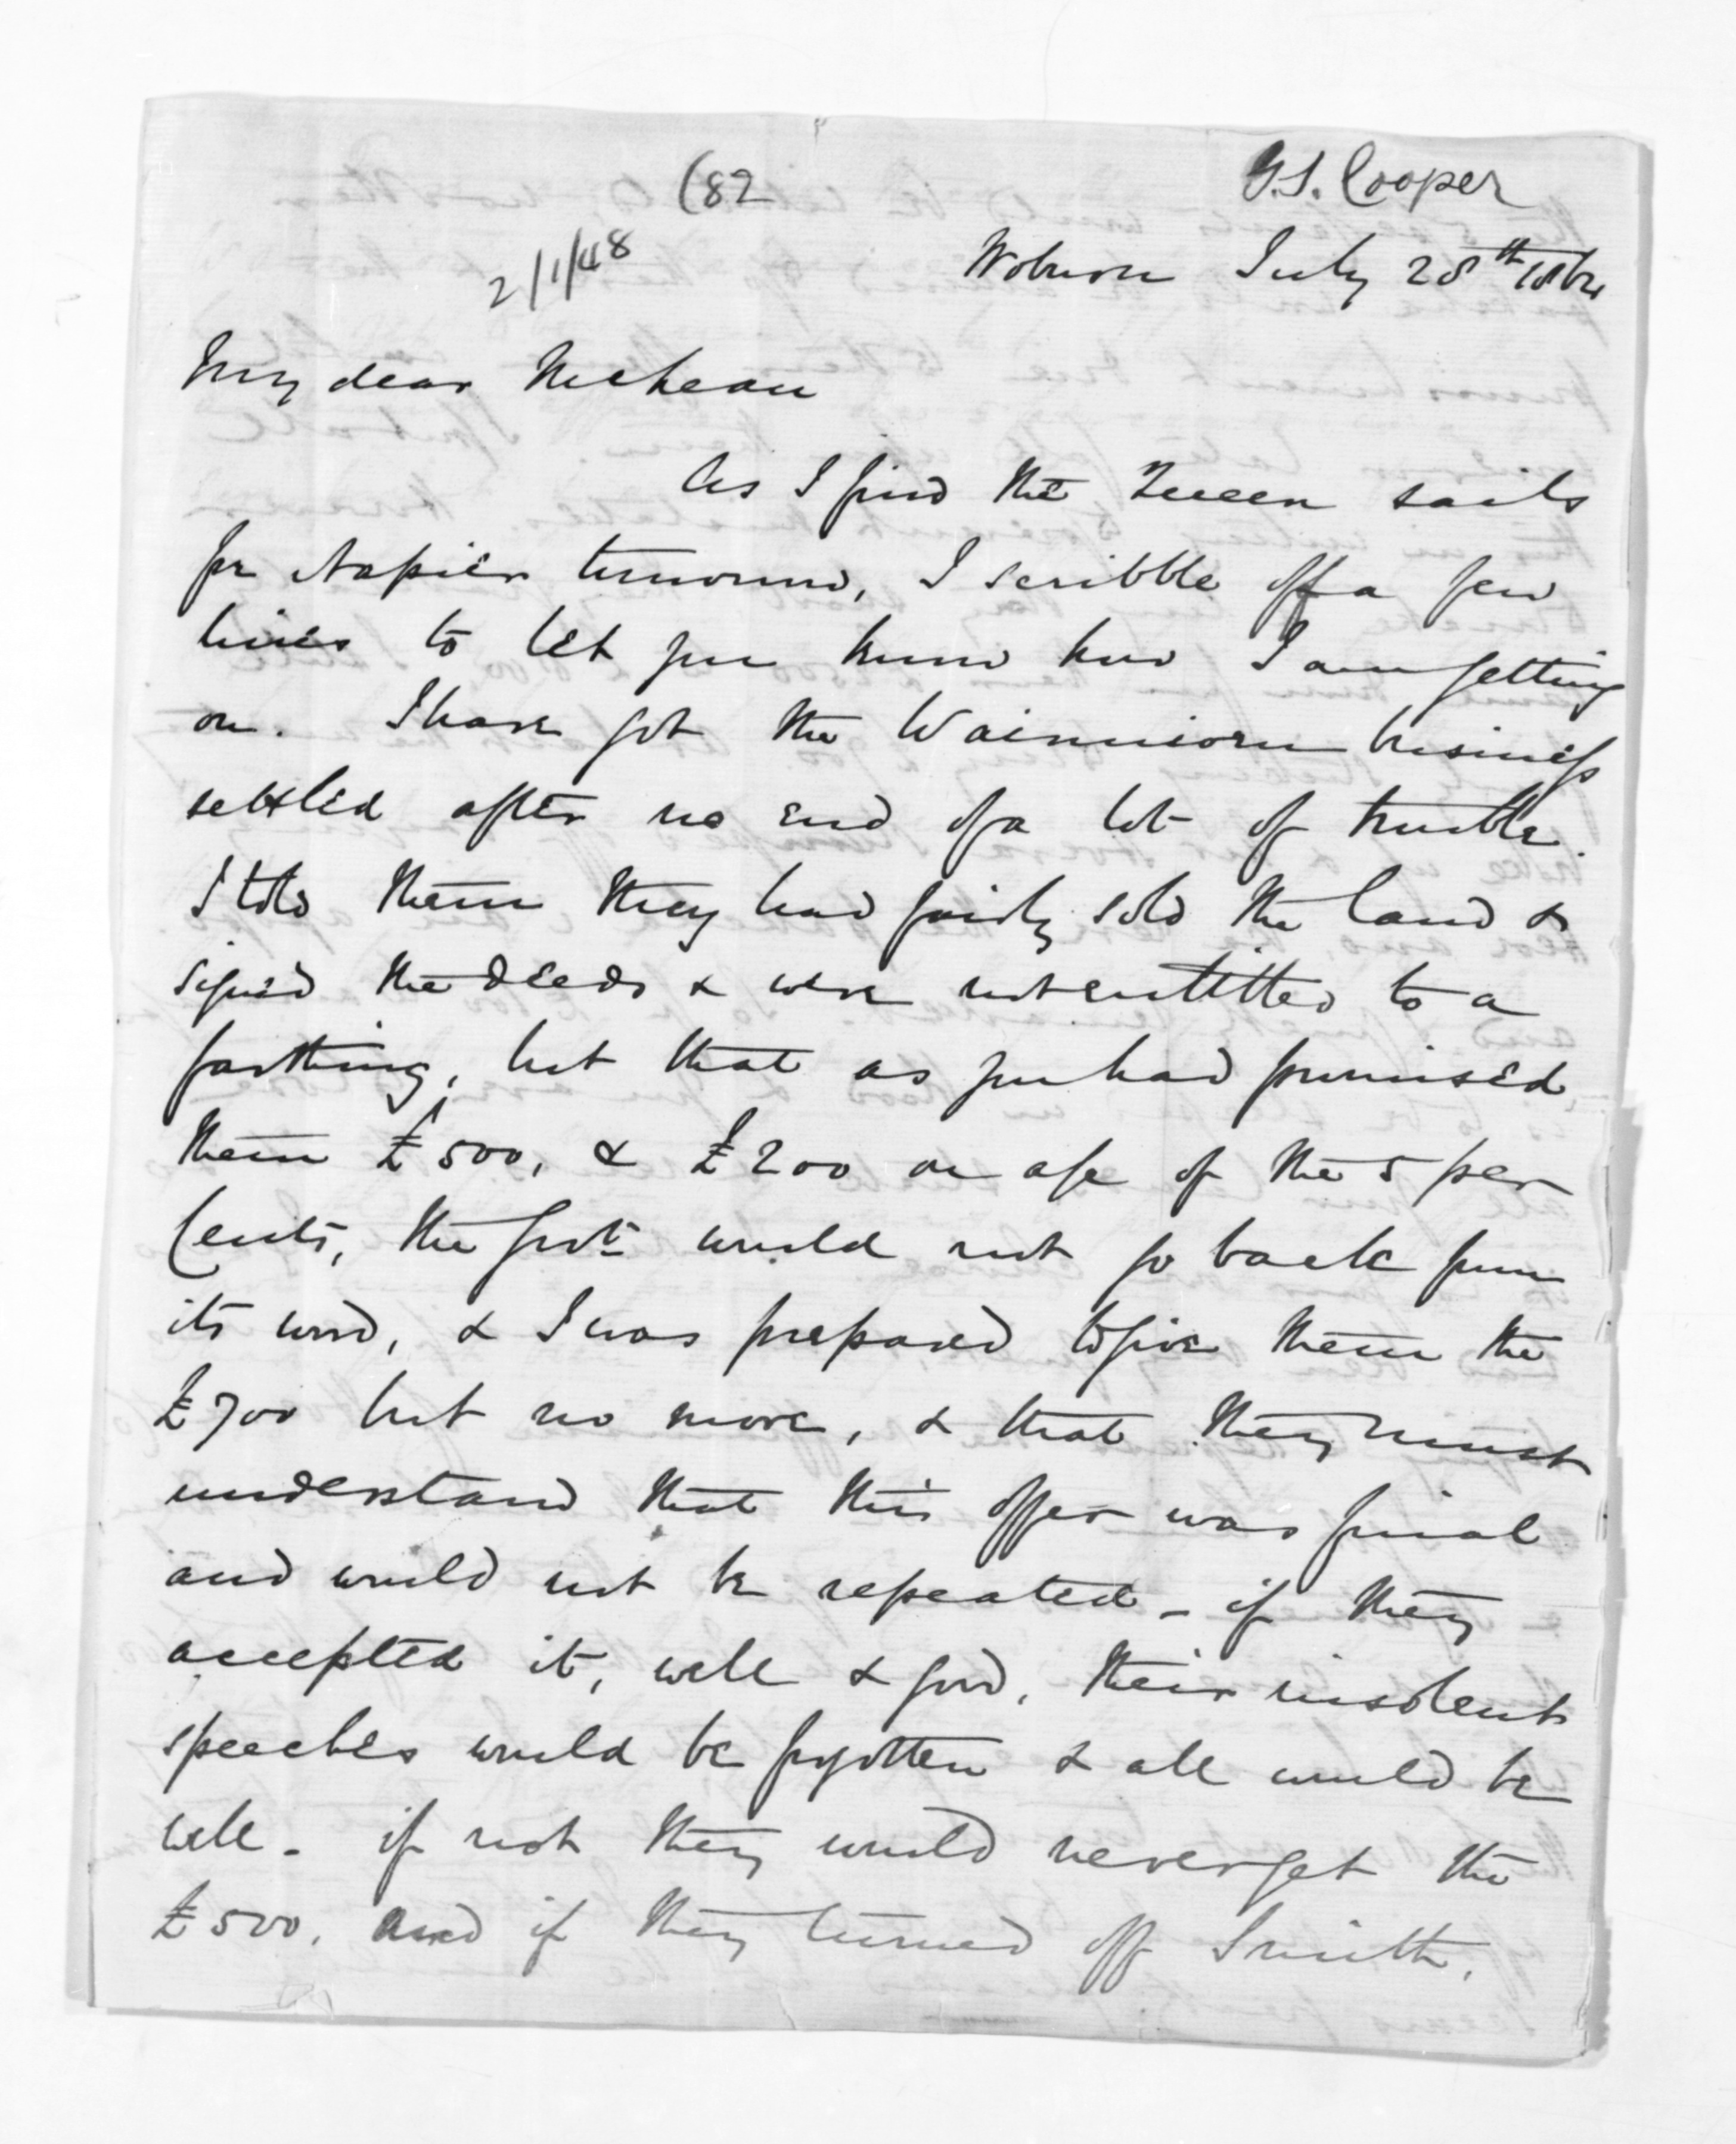 (82
G. S. Cooper
2/1/48
Woburn July 28th 1864
My dear McLean
As I find the Queen sails
for Napier tomorrow, I scribble off a few
lines to let you know how I am getting
on. I have got the business
settled after no end of a lot of trouble.
I told them they had fairly sold the land &
signed the deeds & were not entitled to a
farthing, but that as you had promised
them £500, & £200 on a/c of the 5 per
Cents, the Govt. would not go back from
its word, & I was prepared to give them the
£700 but no more, & that they must
understand that this offer was final
and would not be repeated - if they
accepted it, well & good, their insolent
speeches would be forgotten & all would be
well - if not they would never get the
£500, and if they turned off Smith,